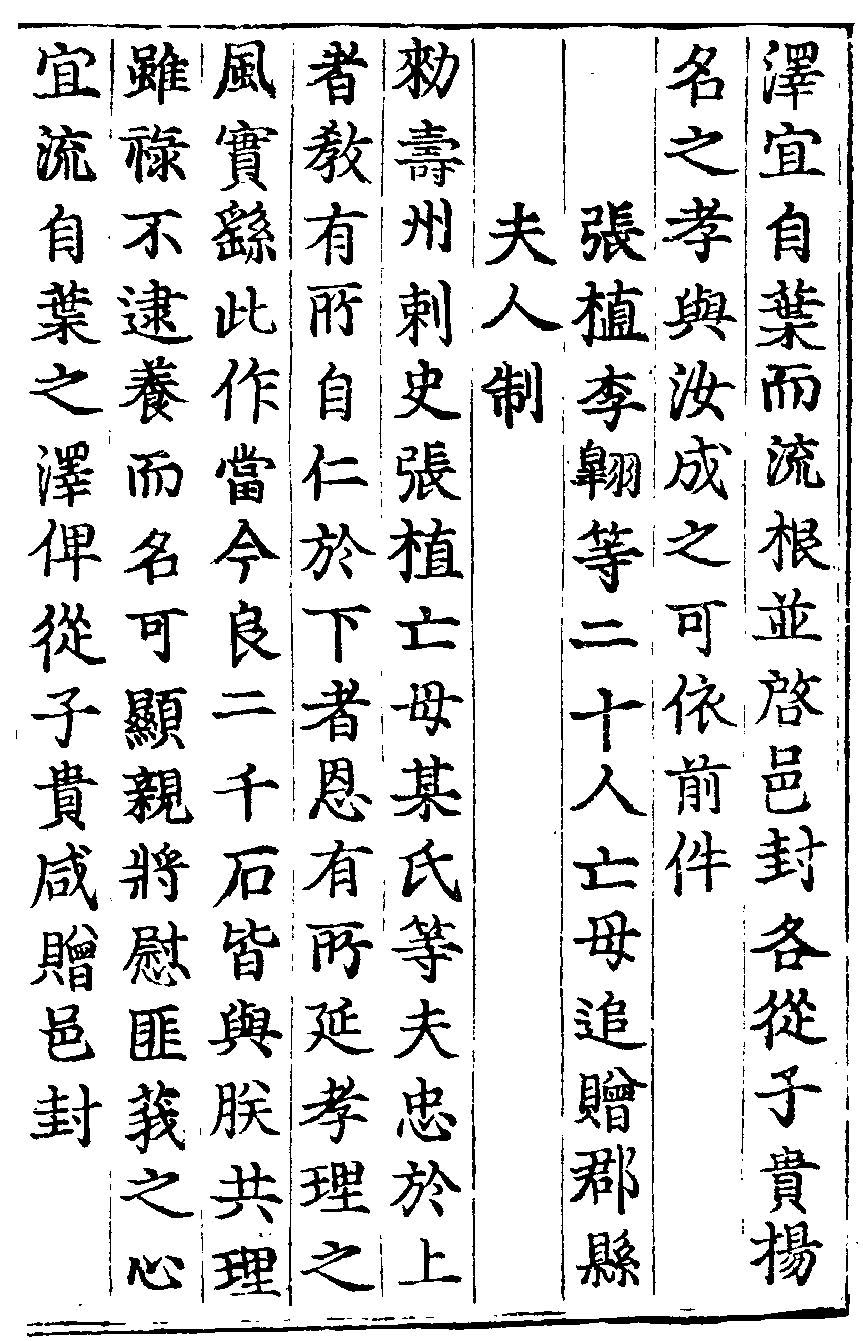 澤宜自葉而流根並啓邑封各從子貴揚
名之孝與汝成之可依前件
張植李翶等二十人亡母追贈郡縣
夫人制
勑壽州刺史張植亡母某氏等夫忠於上
者教有所自仁於下者恩有所延孝理之
風實繇此作當今良二千石皆與朕共理
雖祿不逮養而名可顯親將慰匪莪之心
宜流自葉之澤俾從子貴咸贈邑封